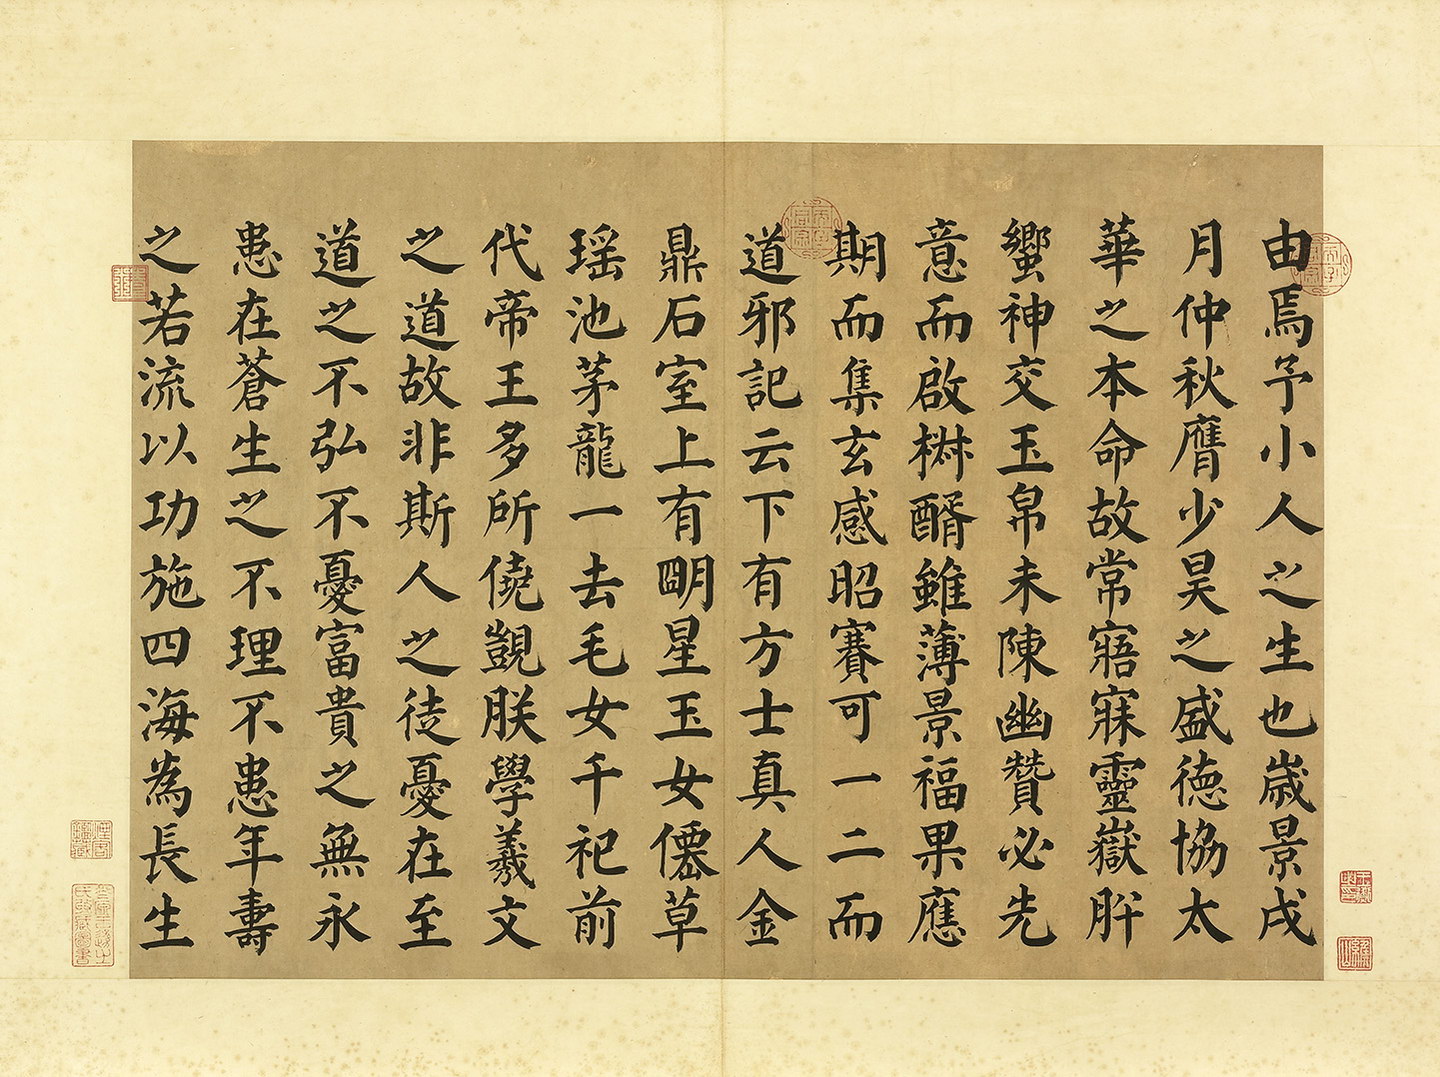 由焉予小人之生也歲景戌
月仲秋膺少昊之盛德協太
華之本命故常寤寐靈嶽肸
蠁神交玉帛未陳幽贊必先
意而啟椒醑雖薄景福果應
期而集玄感昭賽可一二而
道邪記云下有方士真人金
鼎石室上有明星玉女僊草
瑤池茅龍一去毛女千祀前
代帝王多所僥覬朕學羲文
之道故非斯人之徒憂在至
道之不弘不憂富貴之無永
患在蒼生之不理不患年壽
之若流以功施四海為長生